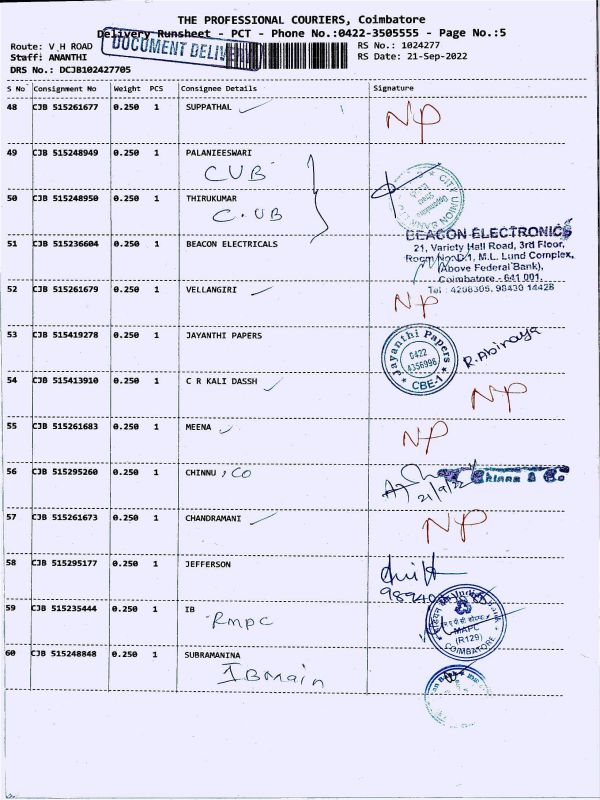 THE PROFESSIONAL COURIERS, Coimbatore
Delivery Runsheet - PCT - Phone No.:0422-3505555 - Page No.:5
DOCUMENT DELIV
Route: V H ROAD RS No.: 1024277
Staff: ANANTHI RS Date: 21-Sep-2022
DRS No.: DCJB102427705
S No Consignment No Weight PCS Consignee Details Signature
48 CJB 515261677 0.250 1 SUPPATHAL NP
49 CJB 515248949 0.250 1 PALANIEESWARI
CUB
CITY UNION BANK
50 CJB 515248950 0.250 1 THIRUKUMAR
C.UB
51 CJB 515236604 0.250 1 BEACON ELECTRICALS
BEACON ELECTRONICS
21, Variety Hall Road, 3rd Floor,
Room No.D/1, M.L. Lund Complex,
(Above Federal Bank),
Coimbatore - 641 001.
Tel : 4208305, 98430 14428
52 CJB 515261679 0.250 1 VELLANGIRI NP
53 CJB 515419278 0.250 1 JAYANTHI PAPERS
Jayanthi Papers
0422
4356998
CBE-1
R. Abinaya
54 CJB 515413910 0.250 1 C R KALI DASSH NP
55 CJB 515261683 0.250 1 MEENA NP
56 CJB 515295260 0.250 1 CHINNU, CO
21/9/22
57 CJB 515261673 0.250 1 CHANDRAMANI NP
58 CJB 515295177 0.250 1 JEFFERSON
59 CJB 515235444 0.250 1 IB
RMPC
MAPC
(R129)
COIMBATORE
60 CJB 515248848 0.250 1 SUBRAMANINA
IBMain